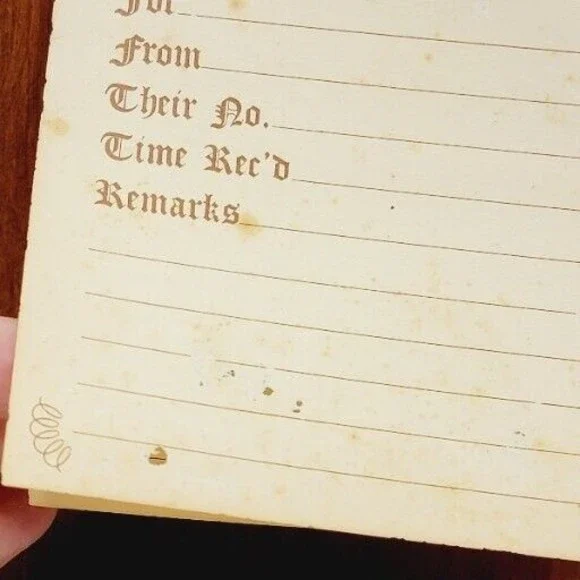 For
From
Their No.
Time Rec'd
Remarks